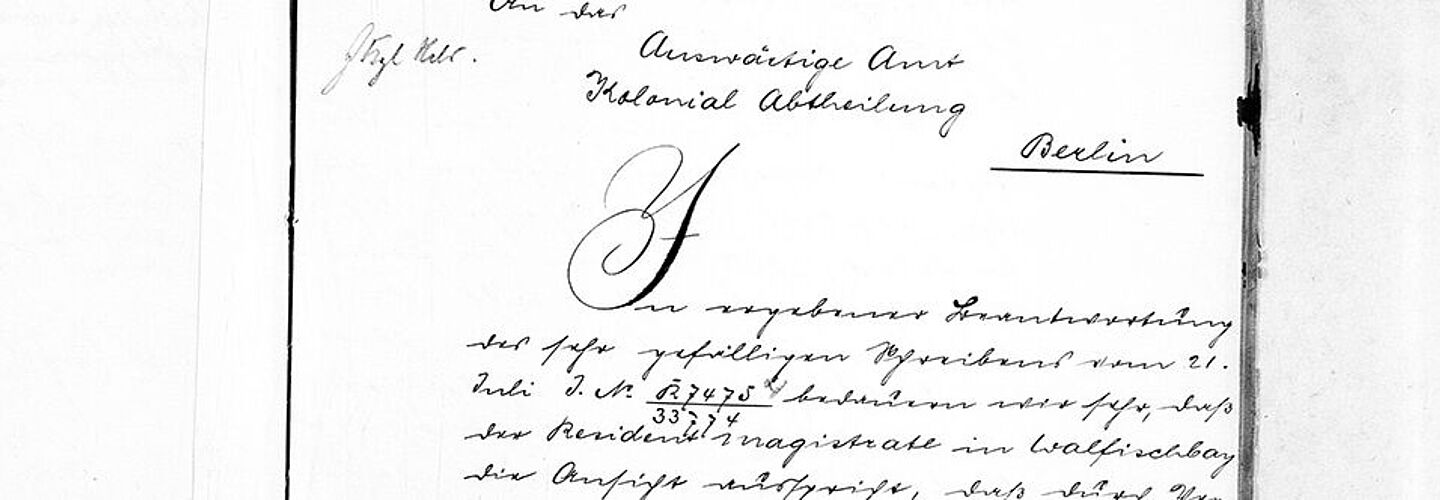 An das
Auswärtige Amt
Kolonial Abtheilung
Berlin
In ergebener Beantwortung
des sehr gefälligen Schreibens vom 21.
Juli J. No. K 7475
33774
bedauern wir sehr, daß
der Resident magistrate in Walfischbay
die Ansicht ausspricht, daß durch Ver-